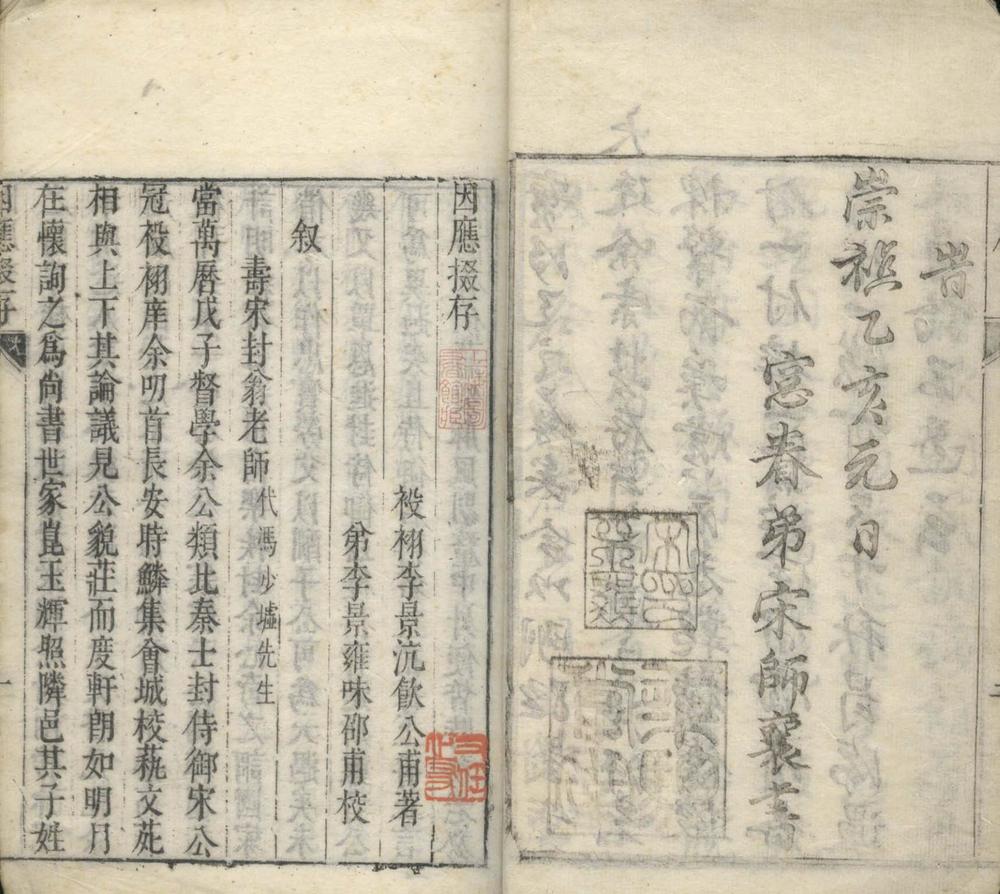 旹
崇禎乙亥元日
窓眷弟宋師襄書
因應掇存
祋祤李景沆飲公甫著
弟李景雍味邵甫校
叙
壽宋封翁老師代馮少墟先生
當萬曆戊子督學余公類比秦士封侍御宋公
冠祋祤庠余叨首長安時鱗集會城校蓺文苑
相與上下其論議見公貌莊而度軒朗如明月
在懷詢之爲尚書世家崑玉輝照隣邑其子姓
因應掇存
一